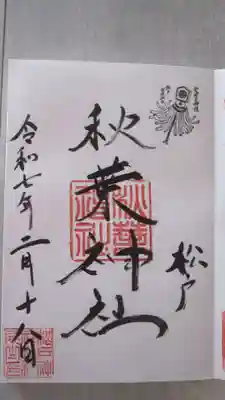 松戸
秋葉神社
令和七年二月十八日